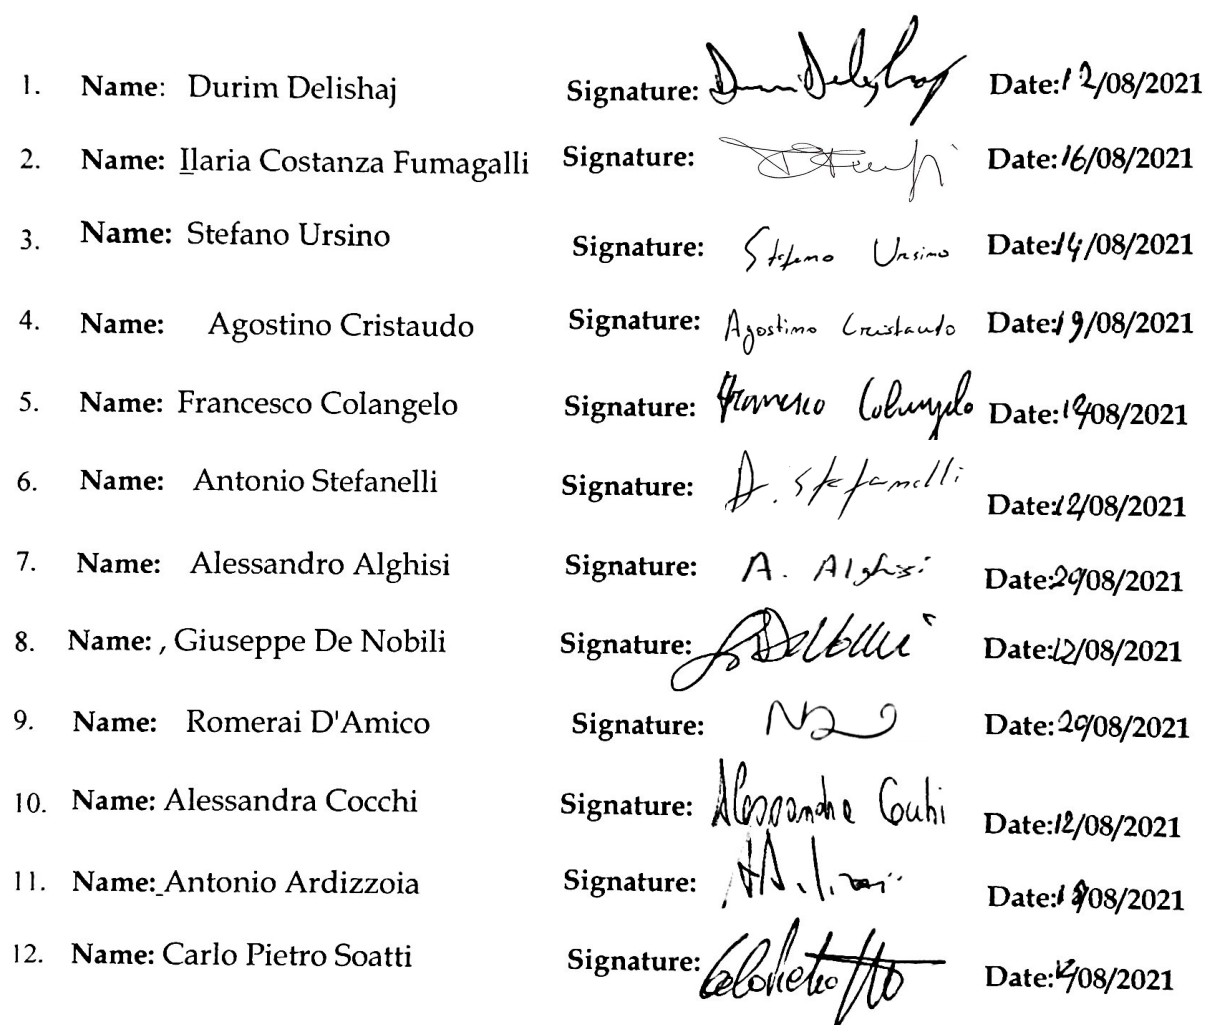 1. Name: Durim Delishaj Signature: Durim Delishaj Date: 12/08/2021
2. Name: Ilaria Costanza Fumagalli Signature: Date: 16/08/2021
3. Name: Stefano Ursino Signature: Stefano Ursino Date: 14/08/2021
4. Name: Agostino Cristaudo Signature: Agostino Cristaudo Date: 19/08/2021
5. Name: Francesco Colangelo Signature: Francesco Colangelo Date: /08/2021
6. Name: Antonio Stefanelli Signature: A. Stefanelli Date: 12/08/2021
7. Name: Alessandro Alghisi Signature: A. Alghisi Date: /08/2021
8. Name: , Giuseppe De Nobili Signature: Date: 12/08/2021
9. Name: Romerai D'Amico Signature: Date: /08/2021
10. Name: Alessandra Cocchi Signature: Alessandra Cocchi Date: 12/08/2021
11. Name: Antonio Ardizzoia Signature: Date: /08/2021
12. Name: Carlo Pietro Soatti Signature: Date: 12/08/2021